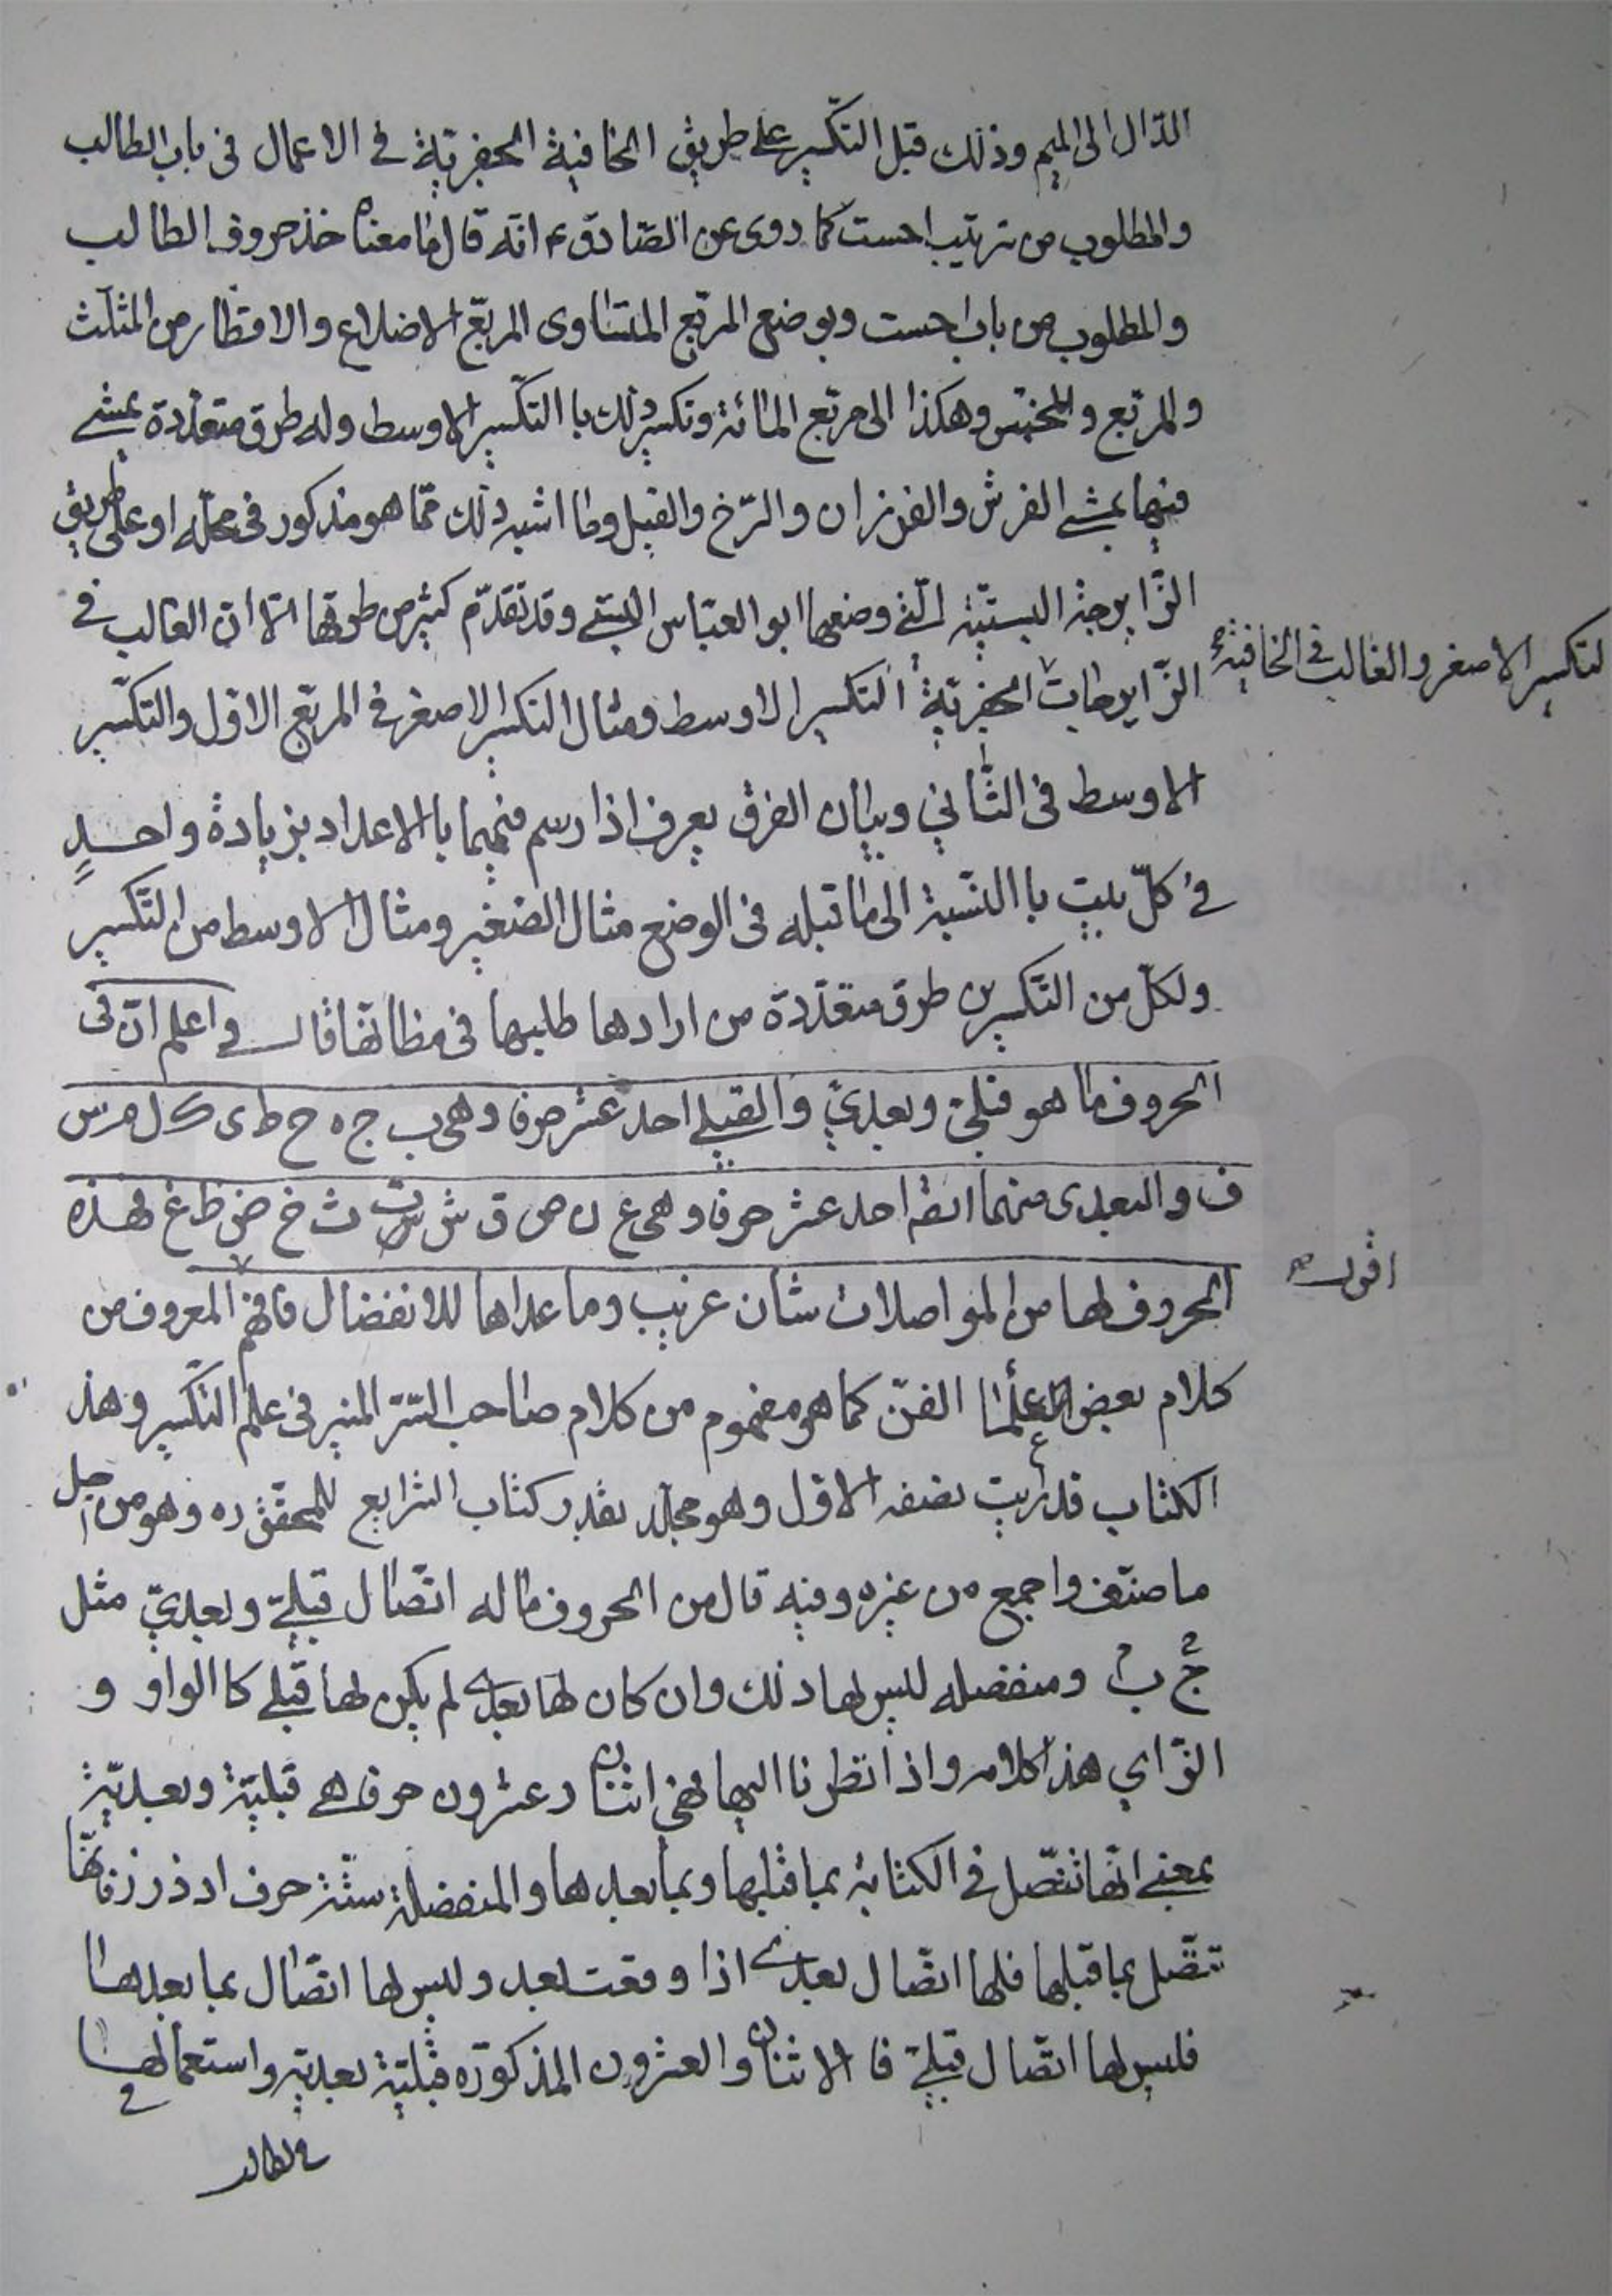 الدّال الى الميم وذلك قبل التكّسير على طريق الخافية الجفريّة في الاعمال فى باب الطالب
والمطلوب من ترتيب احست كما روى عن الصّادق ع انّه قال ما معناه خذ حروف الطالب
والمطلوب من باب احست وبوضع المربّع المتساوى المربّع الاضلاع والاقطار من المثلّث
والمربّع والمخمّس وهكذا الى مربّع المائة وتكسير ذلك با التكّسير الاوسط وله طرق متعدّدة يمشى
فيها يمشى الفرش والفرزان والرّخ والفيل وما اشبه ذلك ممّا هو مذكور فى محلّه او على طريق
الزّايرجة البستيّة الّتي وضعها ابو العبّاس البستي وقد تقدّم كثير من طرقها الّا ان الغالب في
التكسير الاصغر والغالب في الخافية
الزّايرجات الجفريّة التكسير الاوسط ومثال التكسير الاصغر في المربّع الاوّل والتكّسير
الاوسط فى الثّاني وبيان الفرق يعرف اذا رسم فيهما با الاعداد بزيادة واحدٍ
في كلّ بيت با النّسبة الى ما قبله فى الوضع مثال الصّغير ومثال الاوسط من التكّسير
ولكلّ من التكّسيرين طرق متعدّدة من ارادها طلبها فى مظانّها قال واعلم انّ فى
الحروف ما هو قبليّ وبعديّ والقبلي احد عشر حرفا وهى ب ج ه ح ط ى ك ل م س
ف والبعدى منهما ايضا احد عشر حرفا وهى ع ن ص ق ش ت ث خ ض ظ غ فهذه
الحروف لها من المواصلات شان غريب وما عداها للانفصال فافهم المعروف من
اقول
كلام بعض علمآ الفنّ كما هو مفهوم من كلام صاحب السّر المنير فى علم التكّسير وهذ
الكتاب قد رأيت نصفه الاوّل وهو مجلّد بقدر كتاب الشرايع للمحقّق ره وهو من اجلّ
ما صنّف واجمع من غيره وفيه قال من الحروف ما له اتّصال قبليّ وبعديّ مثل
ج ب ومنفصله ليس لها ذلك وان كان لها بعدى لم يكن لها قبلي كا الواو و
الزّاي هذا كلامه واذا نظرنا اليها فهي اثنان وعشرون حرفا هى قبليّة وبعديّة
بمعنى انّها تتّصل في الكتابة بما قبلها وبما بعدها والمنفصلة ستّة حرف ا د ذ ر ز و فانّها
تتّصل بما قبلها فلها اتّصال بعدى اذا وقعت بعد وليس لها اتّصال بما بعدها
فليس لها اتّصال قبليّ فا الاثنان والعشرون المذكورة قبليّة بعدية واستعمالها
في